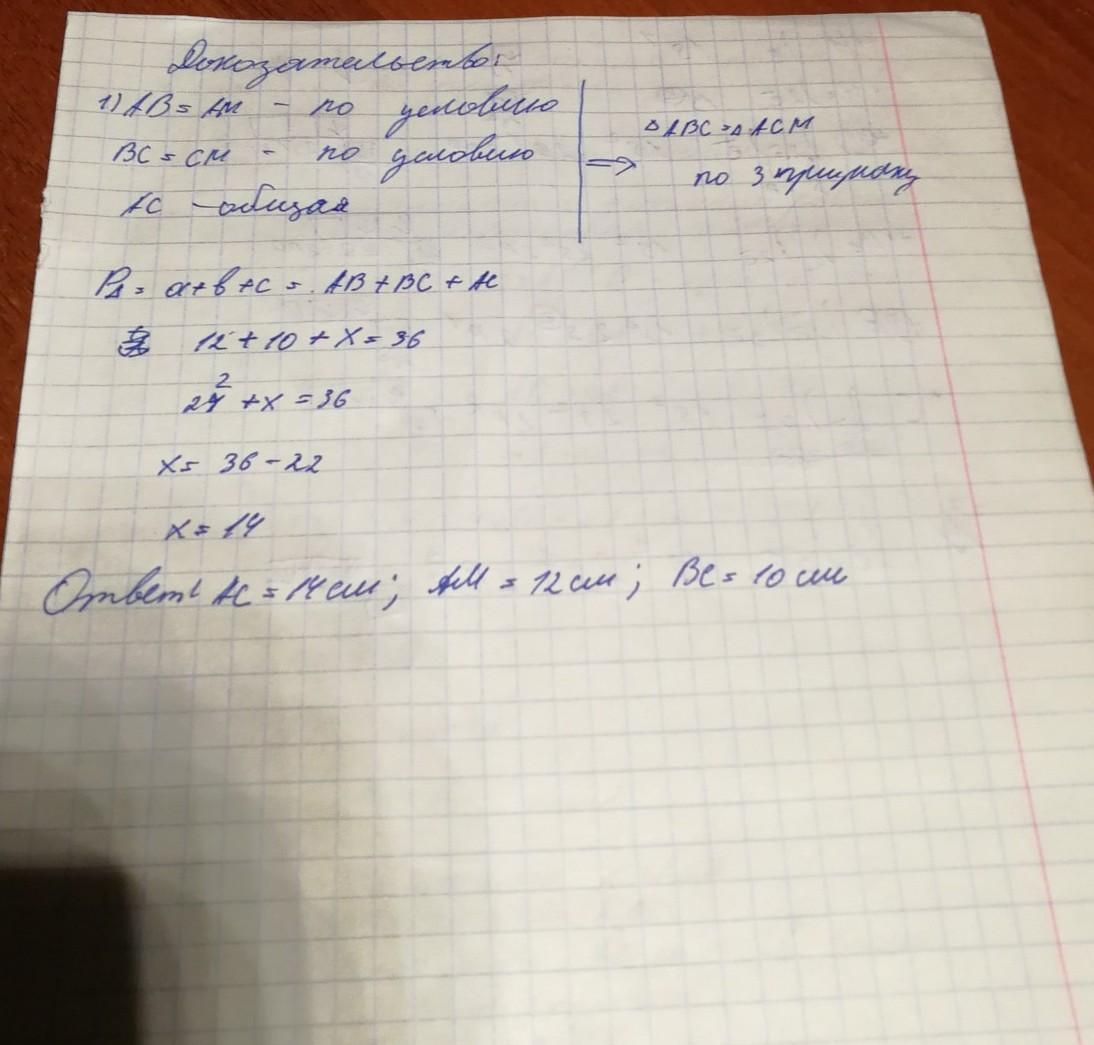 Доказательство:
1) AB = AM - по условию
BC = CM - по условию
AC - общая
⇒
△ABC = △ACM
по 3 признаку
P△ = a + b + c = AB + BC + AC
12 + 10 + x = 36
22 + x = 36
x = 36 - 22
x = 14
Ответ: AC = 14 см; AM = 12 см; BC = 10 см